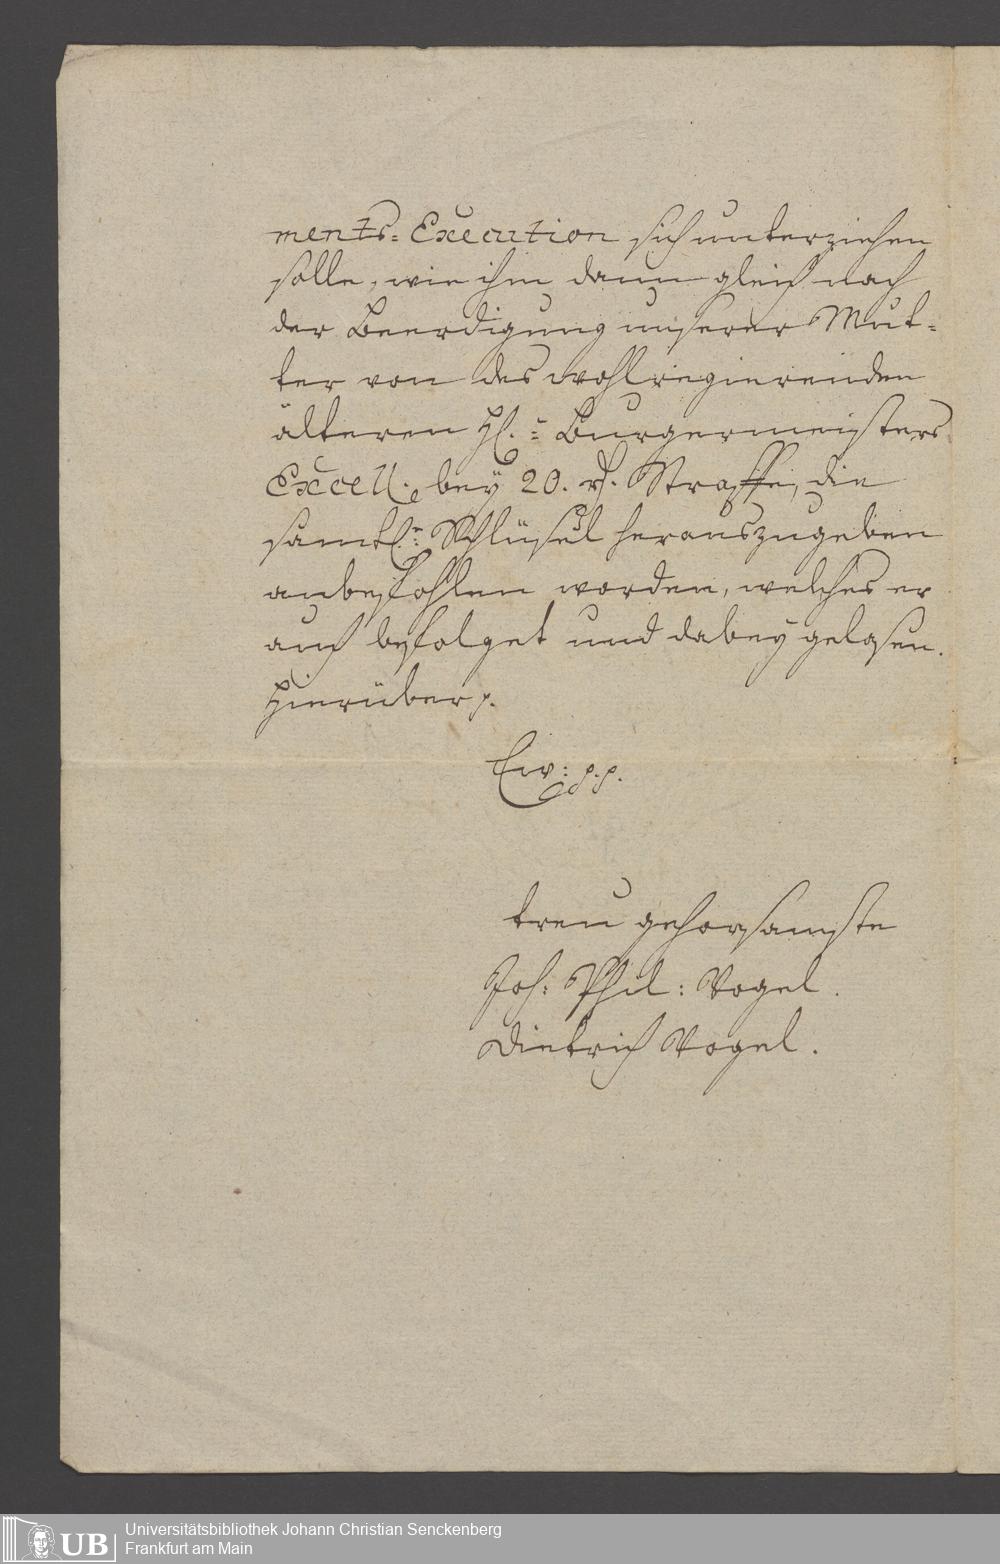 ments-Execution sich unterziehen
solle, wie ihm dann gleich nach
der Beerdigung unserer Mut-
ter von des wohlregierenden
älteren H.: Burgermeisters
Excell. bey 20. rh. Straffe, die
samtl.n Schlüsel herauszugeben
anbefohlen worden, welches er
auch befolget und dabey gelasen.
Hierüber p.
Ew: p. p.
treu gehorsamste
Joh: Phil: Vogel.
Dietrich Vogel.
UB
Universitätsbibliothek Johann Christian Senckenberg
Frankfurt am Main